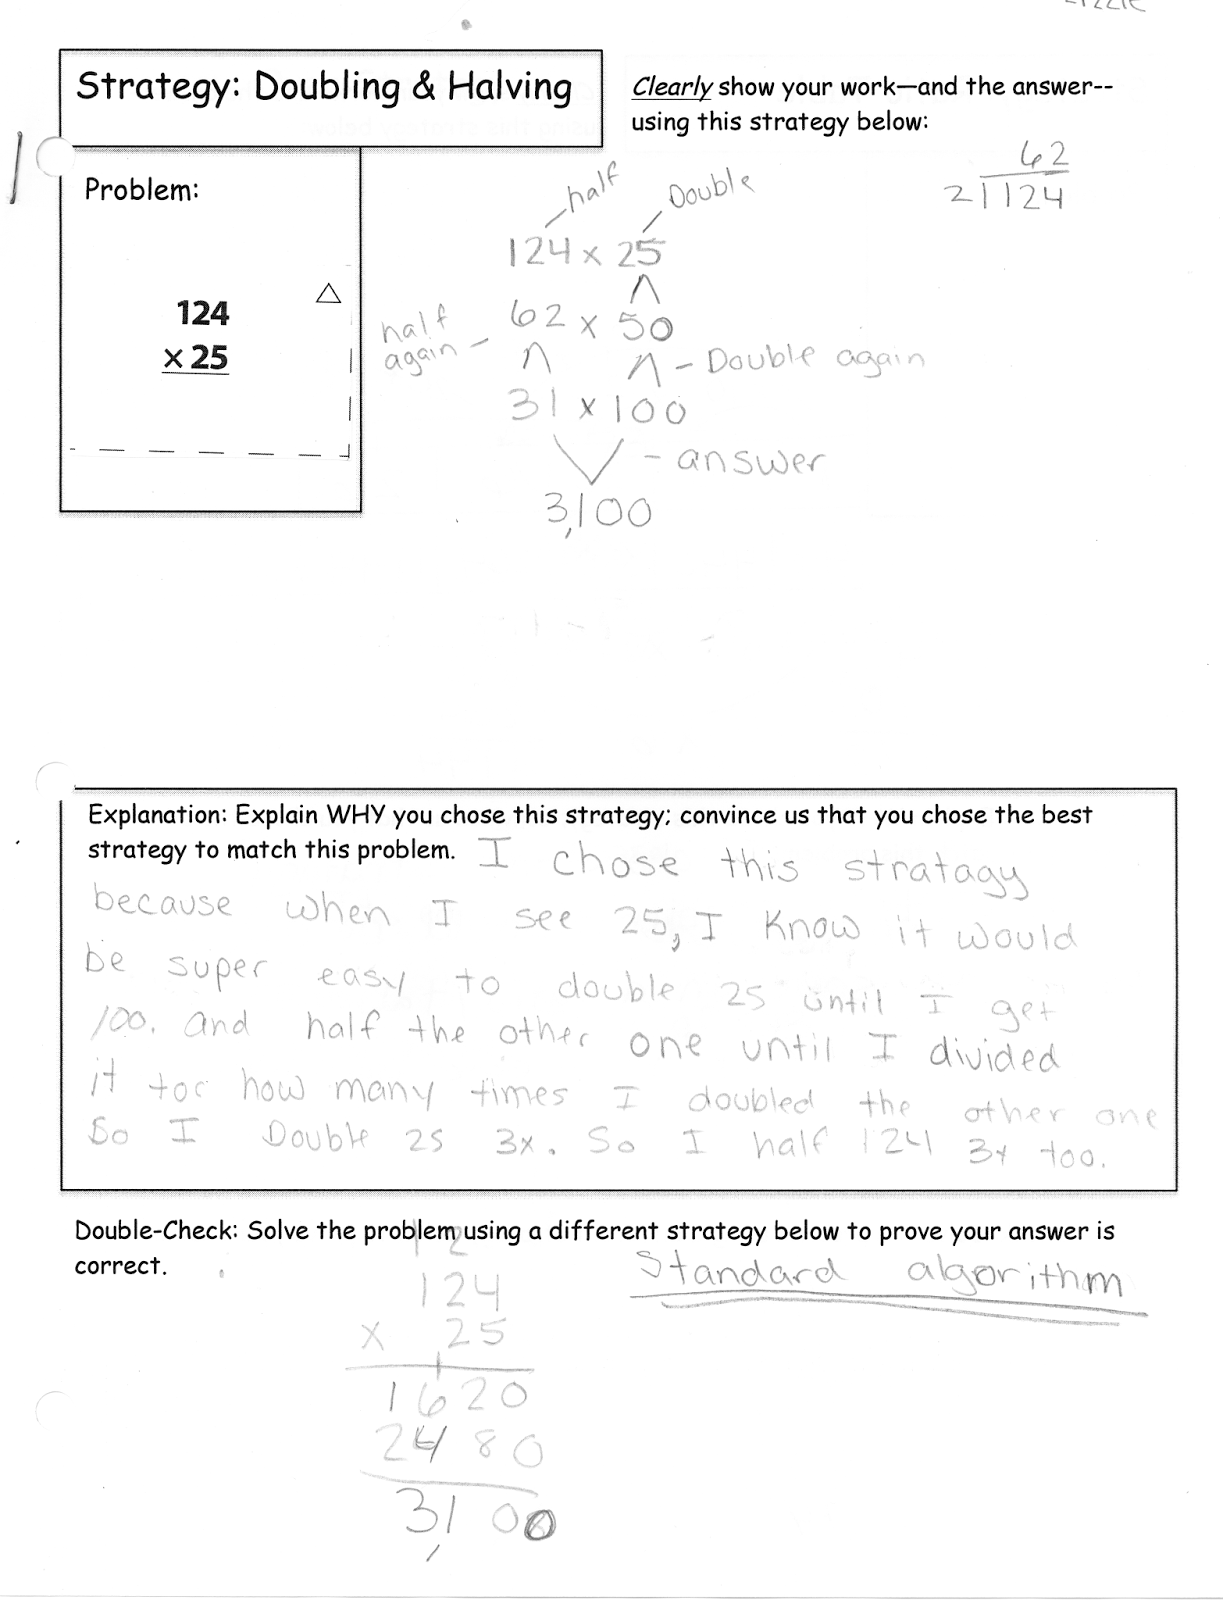 Strategy: Doubling & Halving
Clearly show your work—and the answer--
using this strategy below:
62
2 124
Problem:
124
x 25
half Double
124 x 25
half
again - 62 x 50
- Double again
31 x 100
- answer
3,100
Explanation: Explain WHY you chose this strategy; convince us that you chose the best
strategy to match this problem. I chose this stratagy
because when I see 25, I know it would
be super easy to double 25 until I get
100. and half the other one until I divided
it too how many times I doubled the other one
So I Double 25 3x. So I half 124 3x too.
Double-Check: Solve the problem using a different strategy below to prove your answer is
correct.
Standard algorithm
1 2
124
x 25
1
1620
2480
3,100